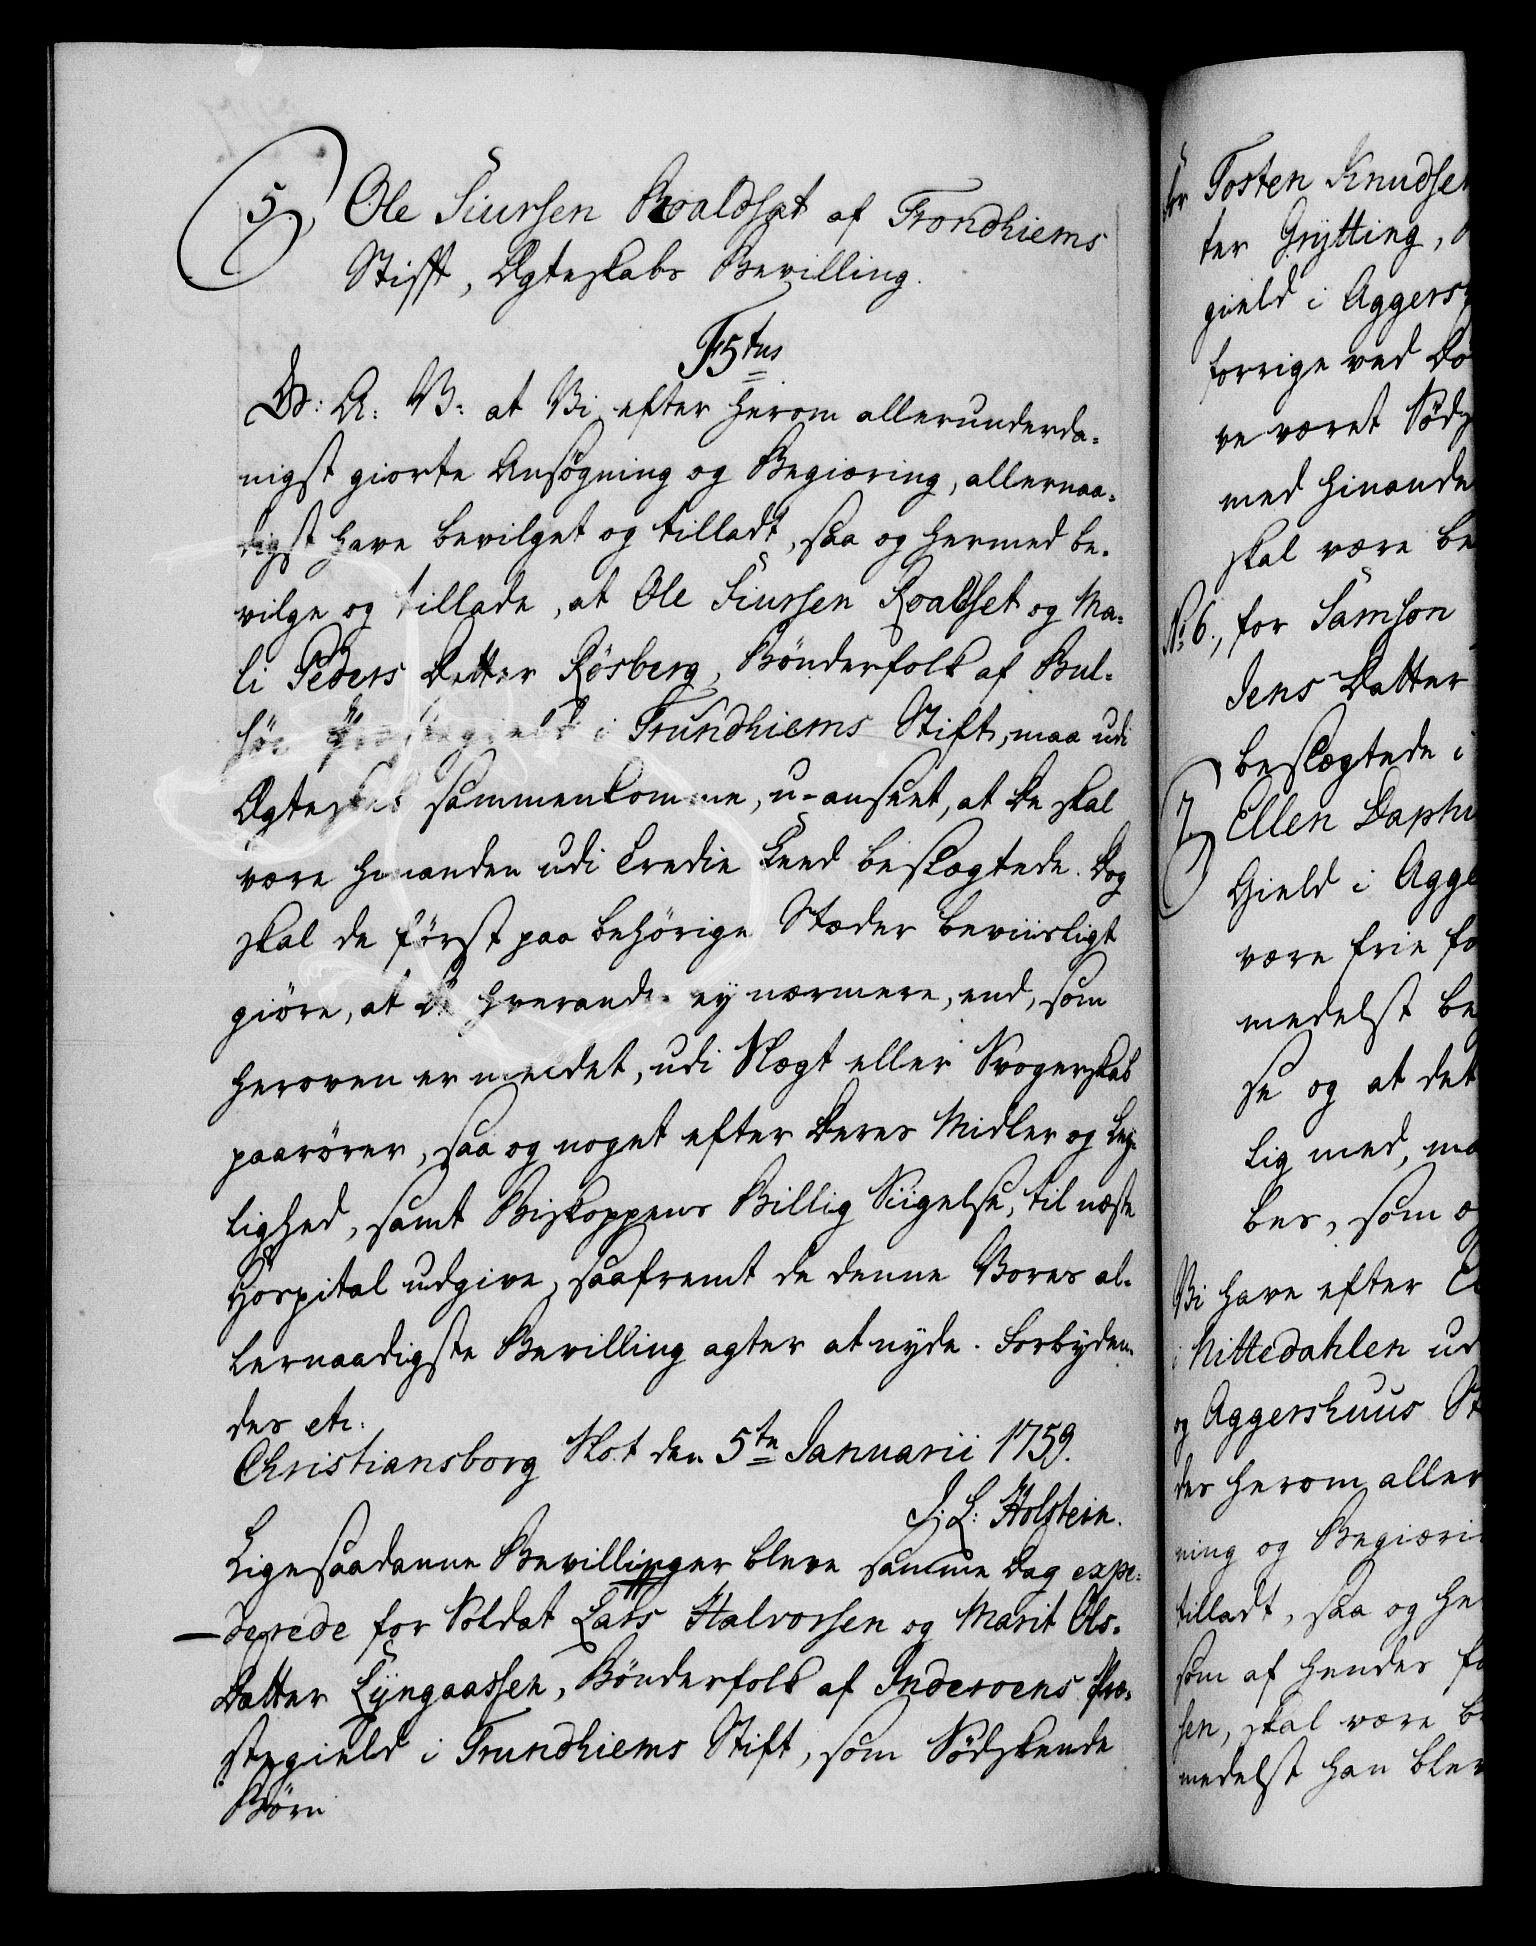 5, Ole Siursen Roaldset af Trondhiems
Stifft, Ægteskabs Bevilling.
F5tus
G: A: V: at Vi efter herom allerunderda-
nigst giorte Ansøgning og Begiæring, allernaa-
digst have bevilget og tilladt, saa og hermed be-
vilge og tillade, at Ole Siursen Roaldset og Ma-
li Peders Datter Røsberg, Bønderfolk af Bul-
søe Præstegield i Trundhiems Stift, maa udi
Ægteskab sammenkomme, u-anseet, at de skal
være hinanden udi tredie Leed beslægtede. Dog
skal de først paa behørige Stæder beviisligt
giøre, at de hverandre ey nærmere, end, som
heroven er meldet, udi Slægt eller Svogerskab
paarører, saa og noget efter deres Midler og Ley-
lighed, samt Biskoppens Billig Siigelse, til næste
Hospital udgive, saafremt de denne Vores al-
lernaadigste Bevilling agter at nyde. Forbyden-
des etc:
Christiansborg Slot den 5te Januarii 1759.
J: L: Holstein.
Ligesaadanne Bevillinger bleve samme Dag expe-
derede for Soldat Lars Halvorsen og Marit Ols-
Datter Lyngaassen, Bønderfolk af Inderoens Præ-
stegield i Trundhiems Stift, som Sødskende
Børn
for Tosten Knudse
ter Grytting,
gield i Aggers
forrige ved Dø
ve været Søds
med hinande
skal være be
No 6., for Samson
Jens Datter
beslægtede i
7, Ellen Daphn
Gield i Agge
være frie fo
medelst be
se og at det
lig med, ma
bes, som o
Vi have efter
i Nittedahlen ud
og Aggershuus St
des herom aller
ning og Begiæri
tilladt, saa og he
som af hendes fo
sen, skal være b
medelst han blev